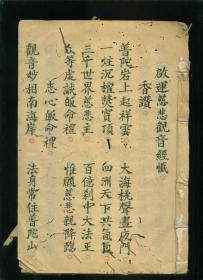 啟運慈悲觀音經懺
香讚
普陀岩上起祥雲
大海桃聲
一炷沉檀焚寶頂
四洲天下共
三千世界慈悲主
百億剎中大法王
眾等虔誠皈命禮
惟願慈悲親降臨
志心皈命禮
觀音妙相南海岸
法身常住普陀山